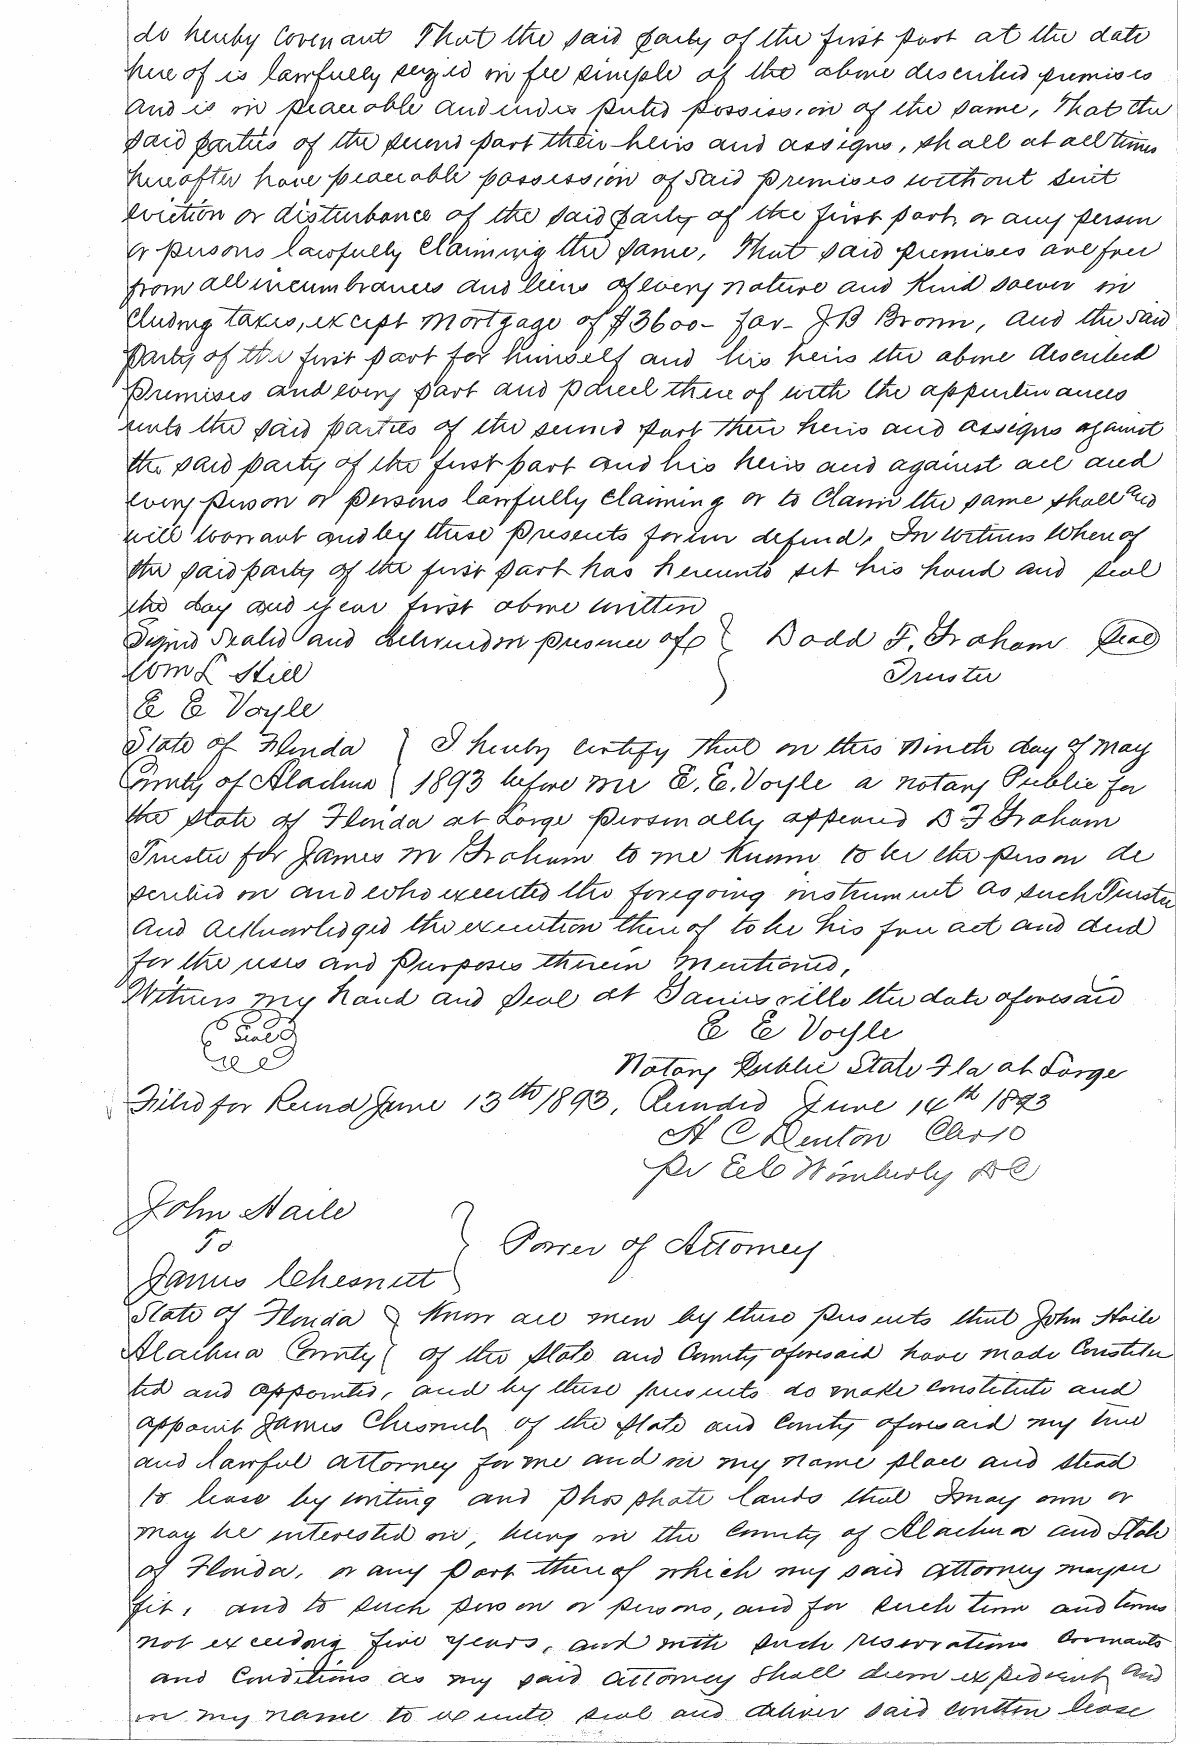 do hereby Covenant That the said party of the first part at the date
here of is lawfully seized in fee simple of the above described premises
and is in peaceable and undisputed possession of the same, That the
said parties of the second part their heirs and assigns, shall at all times
hereafter have peaceable possession of said premises without suit
eviction or disturbance of the said party of the first part, or any person
or persons lawfully claiming the same, That said premises are free
from all incumbrances and liens of every nature and kind soever in
cluding taxes, except Mortgage of $3600- for- J B Brown, and the said
party of the first part for himself and his heirs the above described
premises and every part and parcel there of with the appurtinances
unto the said parties of the second part their heirs and assigns against
the said party of the first part and his heirs and against all and
every person or persons lawfully claiming or to claim the same shall and
will warrant and by these presents forever defend. In witness Whereof
the said party of the first part has hereunto set his hand and seal
the day and year first above written
Signed Sealed and delivered in presence of } Dodd F. Graham Seal
Wm L Still Trustee
E E Voyle
State of Florida } I hereby certify that on this Ninth day of May
County of Alachua } 1893 before me E. E. Voyle a Notary Public for
the state of Florida at Large personally appeared D F Graham
Trustee for James M Graham to me known to be the person de
scribed in and who executed the foregoing instrument as such Trustee
and acknowledged the execution there of to be his free act and deed
for the uses and purposes therein mentioned,
Witness my hand and seal at Gainesville the date aforesaid
Seal E E Voyle
Notary Public State Fla at Large
Filed for Record June 13th 1893, Recorded June 14th 1893
H C Denton Clerk
pr E C Wimberly D C
John Haile
To } Power of Attorney
James Chesnut
State of Florida } Know all men by these presents that John Haile
Alachua County } of the State and County aforesaid have made Constitu
ted and appointed, and by these presents do make constitute and
appoint James Chesnut of the State and County aforesaid my true
and lawful attorney for me and in my name place and stead
to lease by writing and phosphate lands that I may own or
may be interested in, being in the County of Alachua and State
of Florida, or any part there of which my said attorney may see
fit, and to such person or persons, and for such time and terms
not exceeding five years, and with such reservations Covenants
and Conditions as my said attorney shall deem expedient and
in my name to execute seal and deliver said written lease